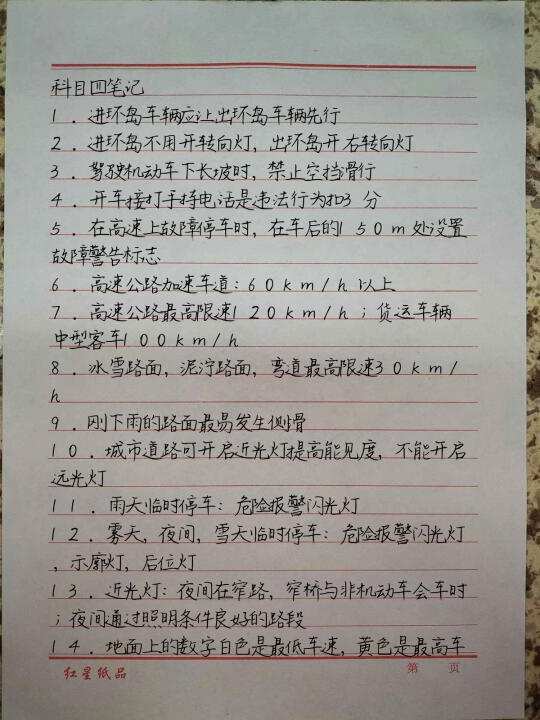 科目四笔记
1. 进环岛车辆应让出环岛车辆先行
2. 进环岛不用开转向灯, 出环岛开右转向灯
3. 驾驶机动车下长坡时, 禁止空挡骨行
4. 开车接打手持电话是违法行为扣3分
5. 在高速上故障停车时, 在车后的150m处设置
故障警告标志
6. 高速公路加速车道:60km/h以上
7. 高速公路最高限速120km/h;货运车辆
中型客车100km/h
8. 冰雪路面, 泥泞路面, 弯道最高限速30km/
h
9. 刚下雨的路面最易发生侧骨
10. 城市道路可开启近光灯提高能见度, 不能开启
远光灯
11. 雨天临时停车: 危险报警闪光灯
12. 雾天, 夜间, 雪天临时停车: 危险报警闪光灯
, 示廓灯, 后位灯
13. 近光灯: 夜间在窄路, 窄桥与非机动车会车时
;夜间通过照明条件良好的路段
14. 地面上的数字白色是最低车速, 黄色是最高车
红星纸品 第 页